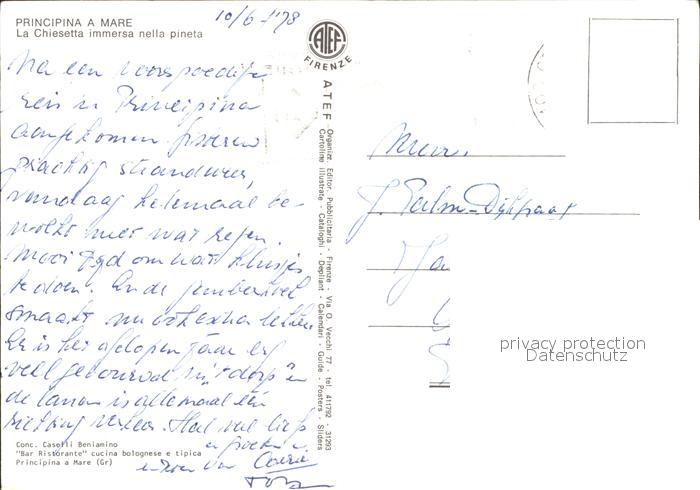 PRINCIPINA A MARE
La Chiesetta immersa nella pineta
10/6 '78
Na een voorspoedige
reis in Principina
aangekomen. gisteren
prachtig strandweer,
vandaag helemaal be-
wolkt met wat regen.
Mooi tijd om wat klusjes
te doen. En de
smaakt nu extra lekker
Er is het afgelopen jaar erg
veel gebouwd in 't dorp en
de is allemaal één
richting verkeer. Heel veel liefs
en groeten
van
Conc. Caselli Beniamino
"Bar Ristorante" cucina bolognese e tipica
Principina a Mare (Gr)
ATEF
FIRENZE
ATEF Organizz. Editor. Pubblicitaria - Firenze - Via O. Vecchi 77 - tel. 411792 - 31293
Cartoline illustrate - Cataloghi - Depliant - Calendari - Guide - Posters - Sliders
Mevr.
J. Palm-Dijkstra
privacy protection
Datenschutz